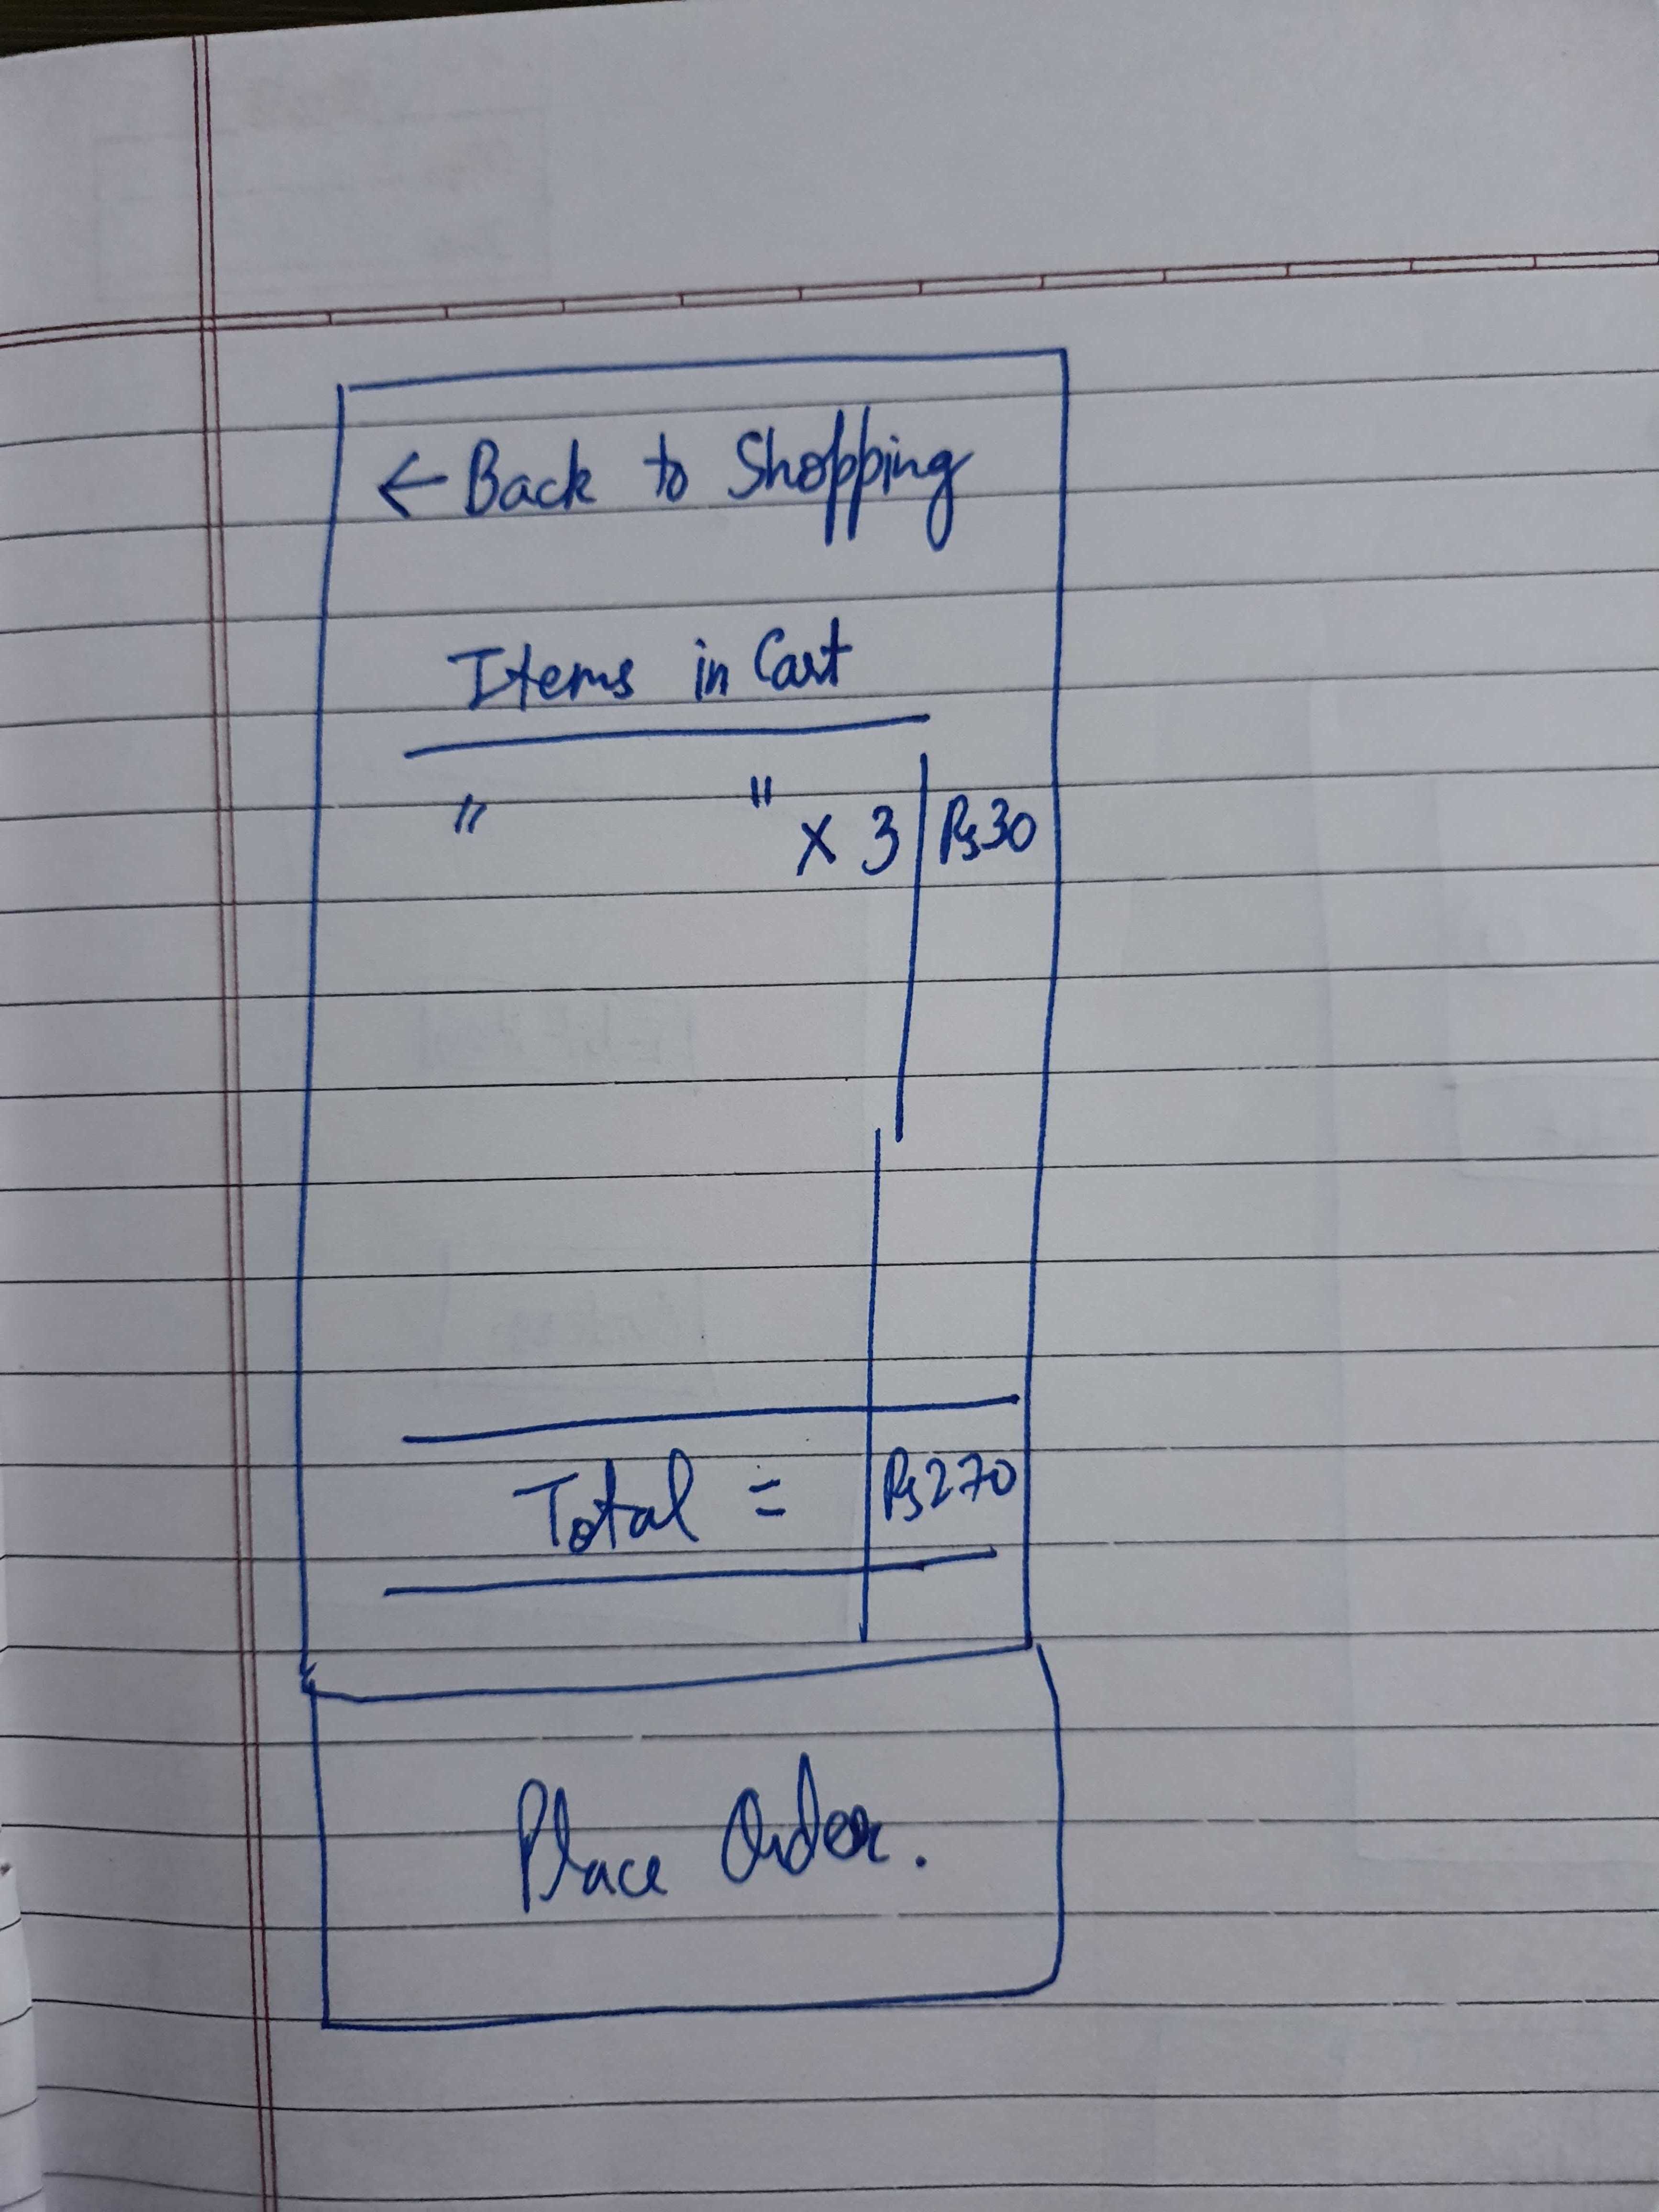 ← Back to Shopping
Items in Cart
" " x 3 Rs30
Total = Rs270
Place Order.